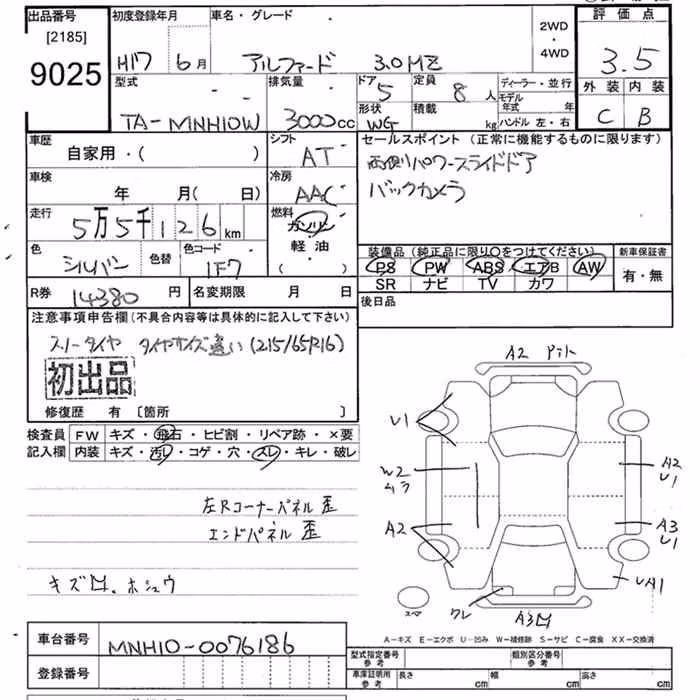 出品番号 初度登録年月 車名・グレード 2WD ・ 4WD 評価点
[2185]
9025 H17 6月 アルファード 3.0MZ 3.5
型式 排気量 ドア 5 定員 8人 ディーラー・並行 外装 内装
モデル年式 年
TA-MNH10W 3000cc 形状 WG 積載 kg ハンドル 左・右 C B
車歴 自家用・( ) シフト AT セールスポイント(正常に機能するものに限ります)
両側パワースライドドア
車検 年 月(日) 冷房 AAC バックカメラ
走行 5万5千126km 燃料 ガソリン
軽油・
( )
色 シルバー 色替 色コード 1F7 装備品(純正品に限り○をつけてください) 新車保証書
PS PW ABS エアB AW 有・無
SR ナビ TV カワ
R券 14380円 名変期限 月 日 後日品
注意事項申告欄(不具合内容等は具体的に記入して下さい)
スノータイヤ タイヤサイズ違い(215/65R16)
初出品
修復歴 有 〔箇所 〕
検査員 FW キズ・飛石・ヒビ割・リペア跡・×要
記入欄 内装 キズ・汚レ・コゲ・穴・スレ・キレ・破レ
左Rコーナーパネル歪
エンドパネル歪
キズ凹、ホシュウ
A2
U1
W2
ムラ
A2
U1
A2
A3
U1
UA1
ワレ
A3凹
スペア
A-キズ E-エクボ U-凹み W-補修跡 S-サビ C-腐食 XX-交換済
車台番号 MNH10-0076186
登録番号
型式指定番号 参考 類別区分番号 参考
車庫証明用 参考 長さ cm 幅 cm 高さ cm